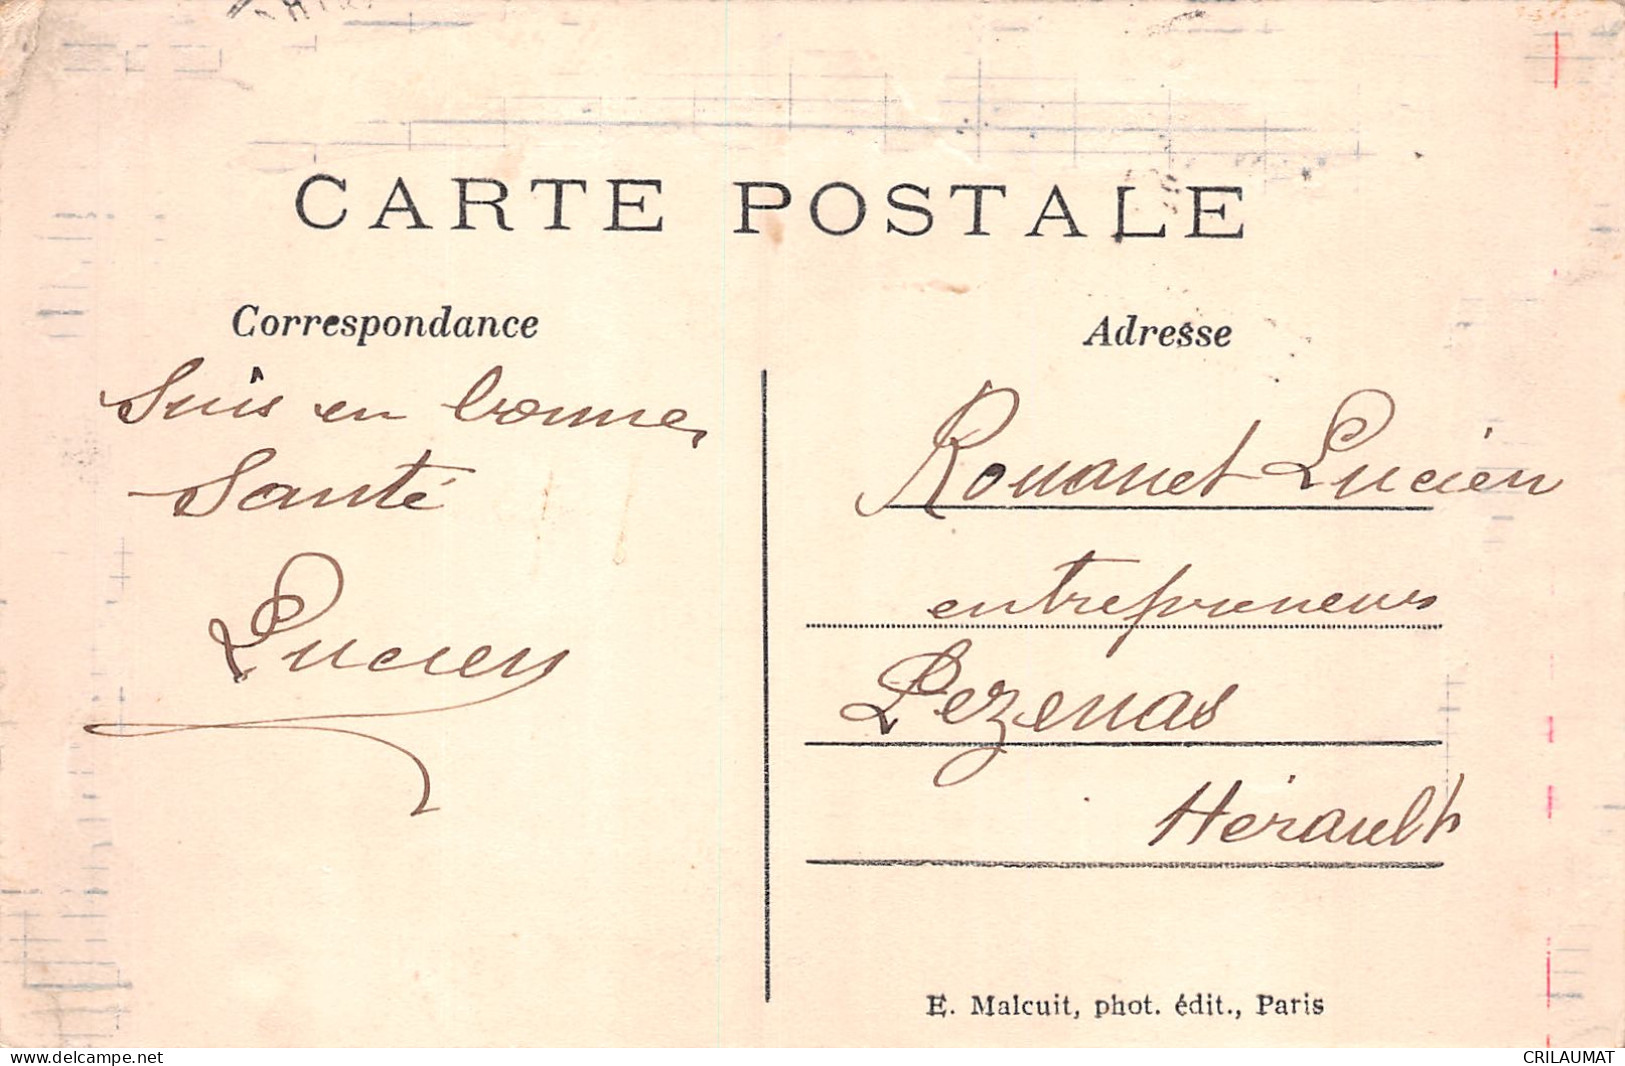 CARTE POSTALE
Correspondance
Suis en bonne
Santé
Lucien
Adresse
Rouanet Lucien
entrepreneur
Pezenas
Hérault
E. Malcuit, phot. édit., Paris
www.delcampe.net
CRILAUMAT